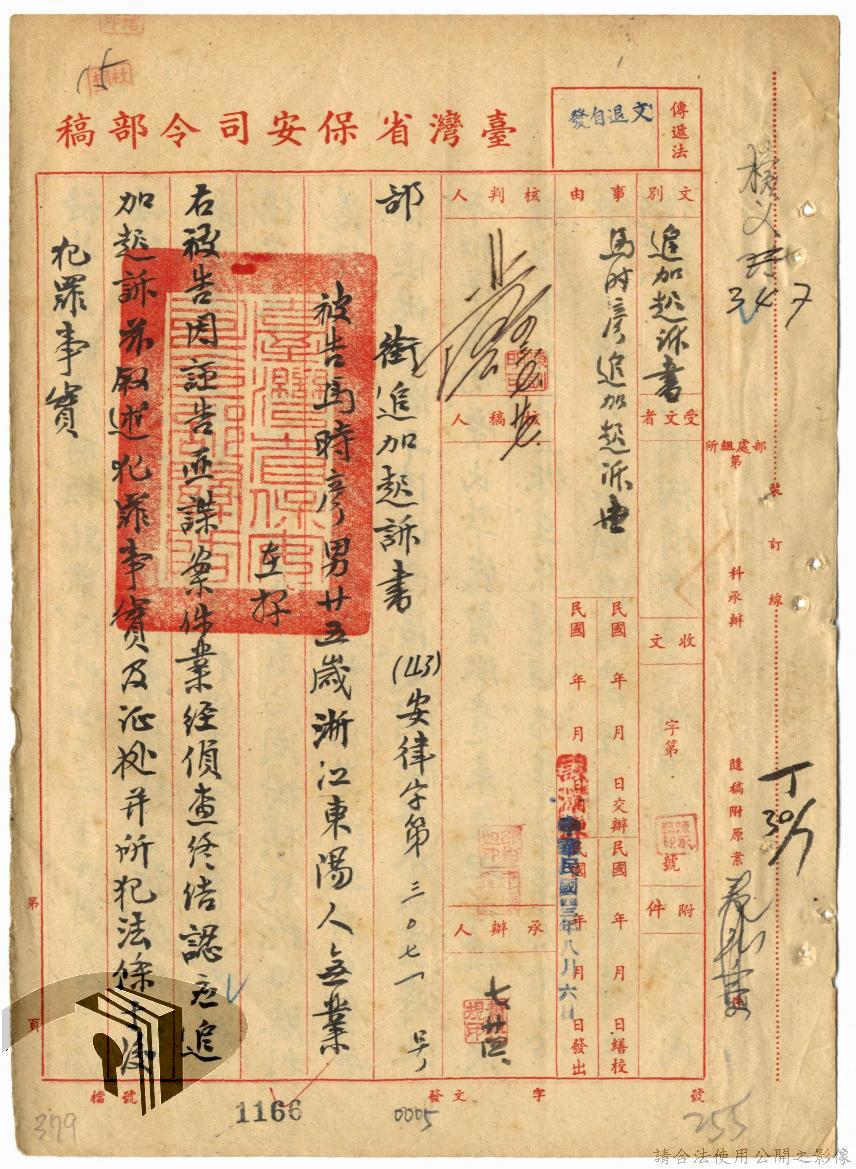 臺灣省保安司令部稿
傳遞法
文退自發
文別
追加起訴書
受文者
事由
馬時彥追加起訴書
核判人
核稿人
承辦人
收文
字第
號
附件
民國 年 月 日交辦
民國 年 月 日繕校
民國 年 月 日發出
中華民國四三年八月六日
部處組所
第
科承辦
隨稿附原業
裝訂線
347
部 銜追加起訴書 (43)安律字第三〇七一号
被告馬時彥男廿五歲浙江東陽人無業
在押
右被告因誣告匪諜案件業經偵查終結認应追
加起訴茲叙述犯罪事實及证據并所犯法條于後
犯罪事實
第 頁
檔號
1166
發文
字
號
0005
255
379
15
請合法使用公開之影像